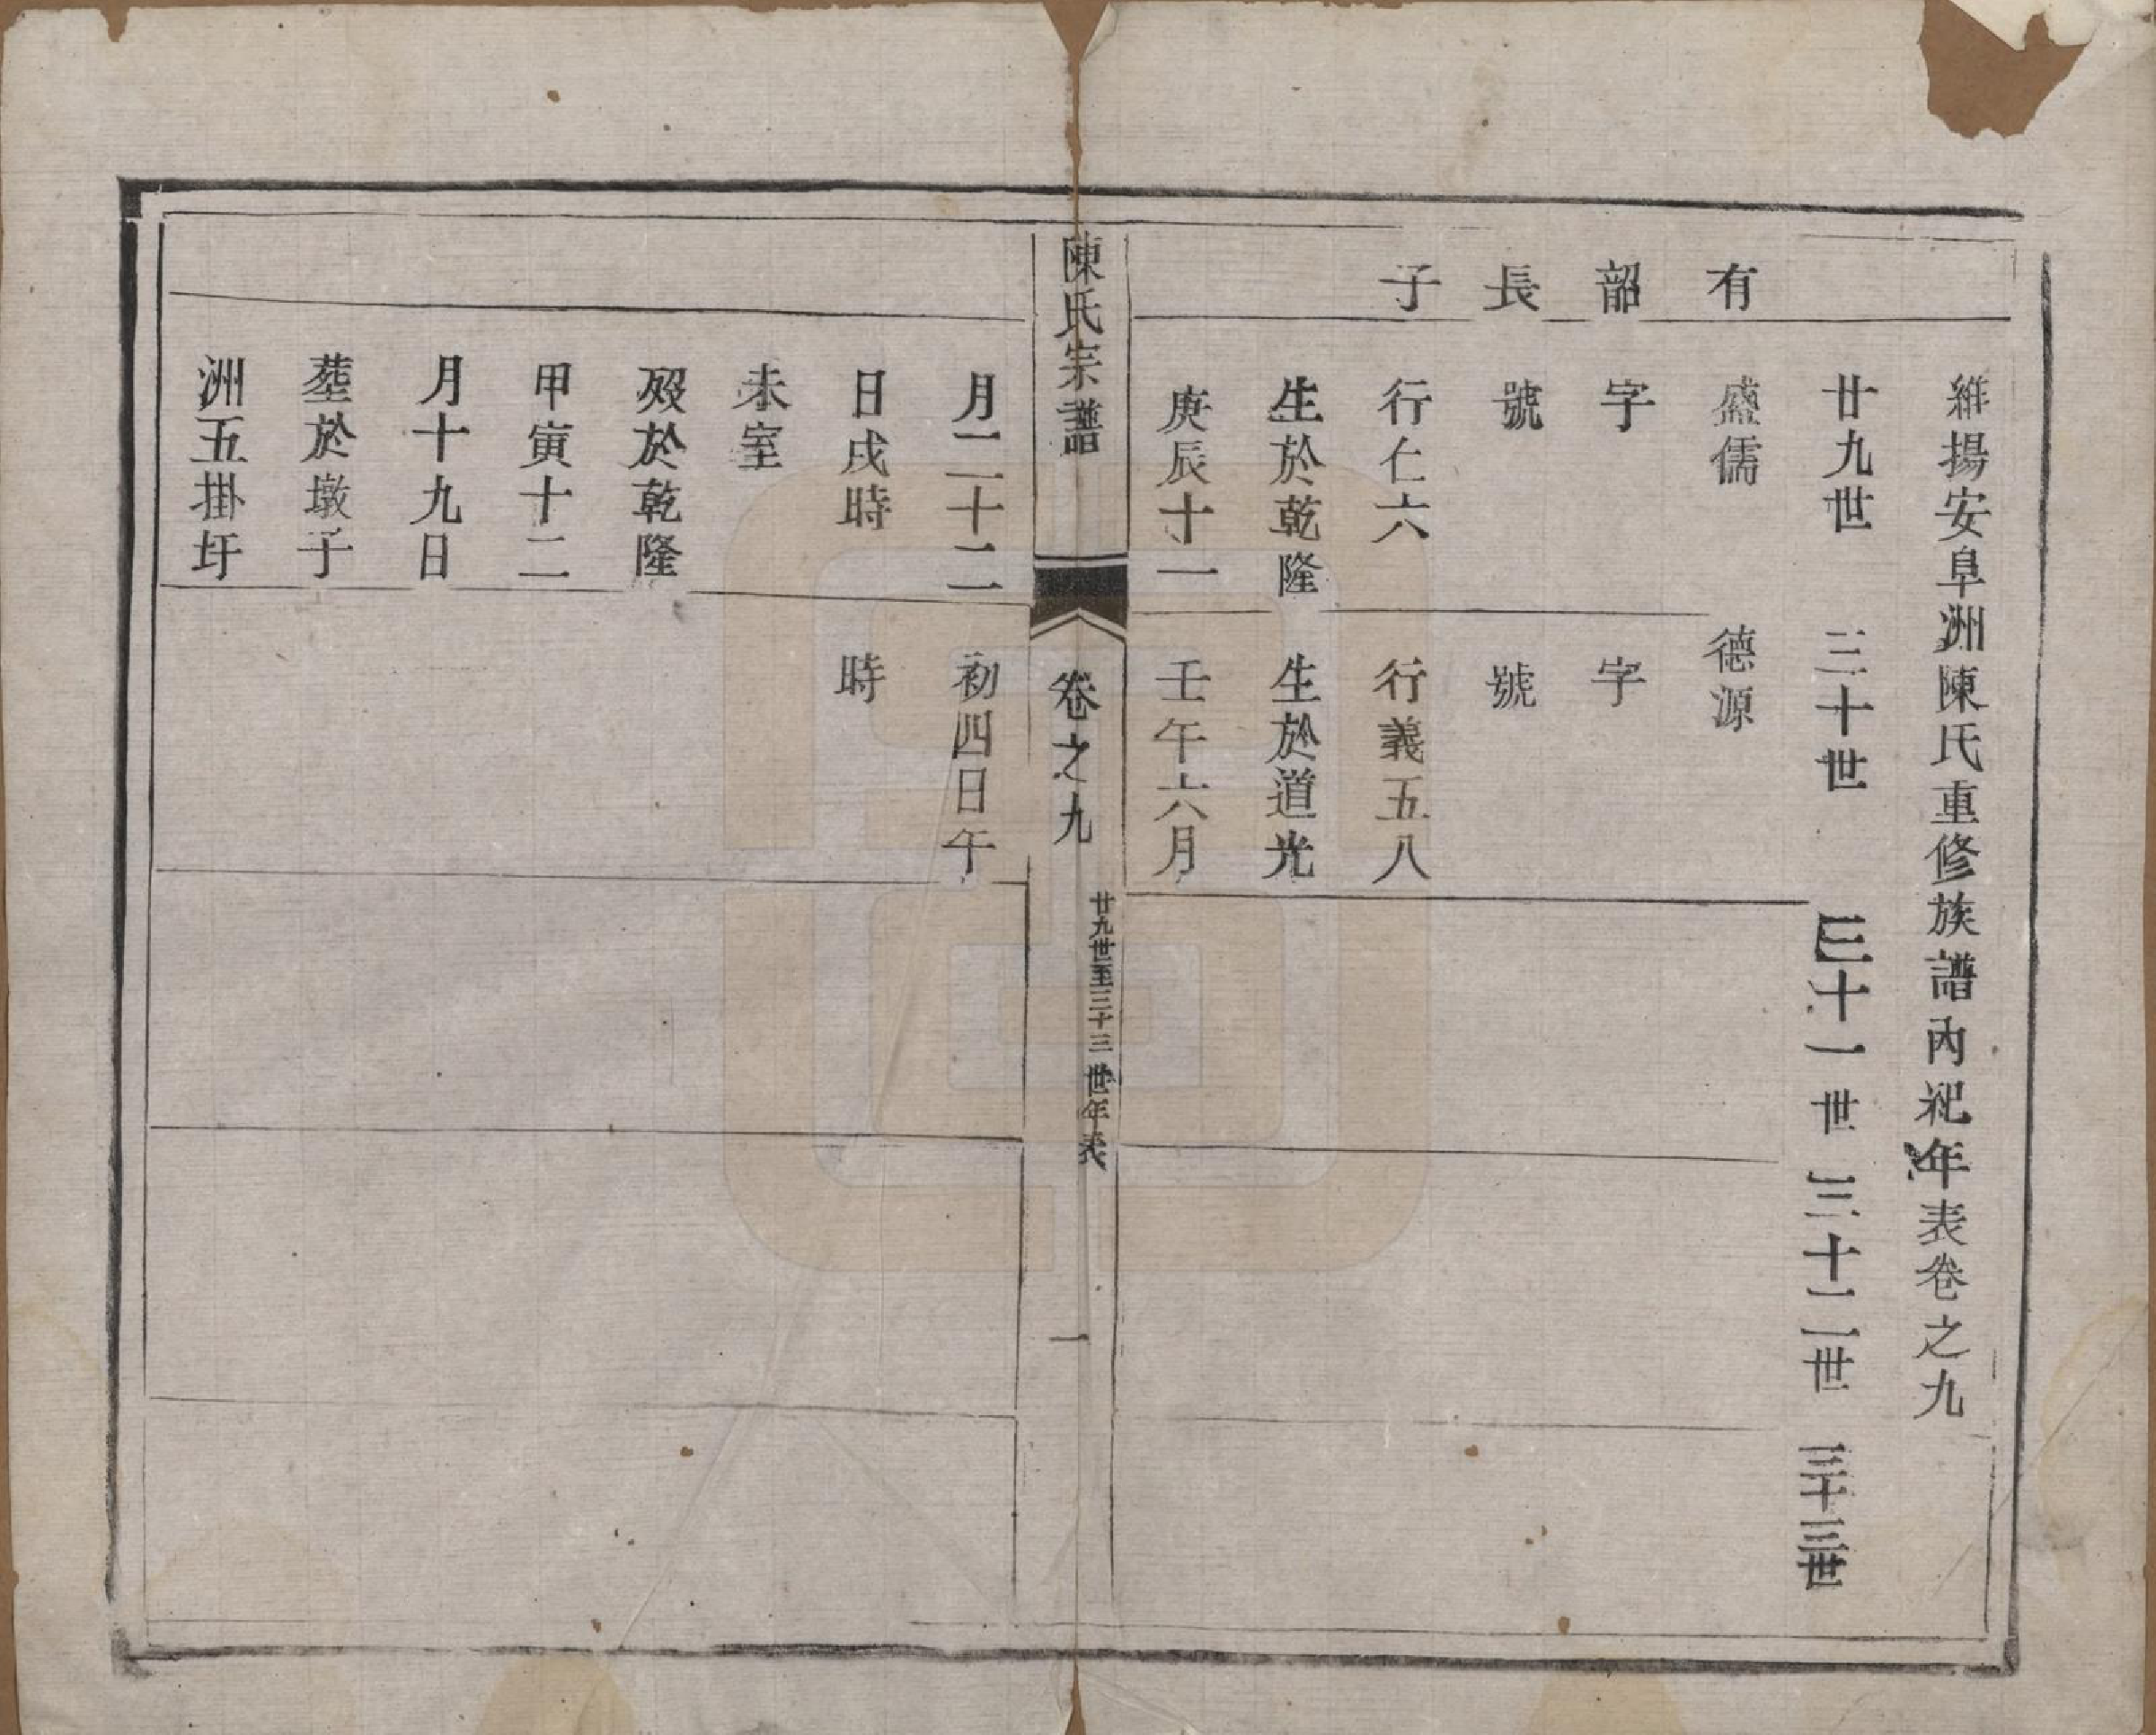 維揚安阜洲陳氏重修族譜內祀年表卷之九
廿九世 三十世 三十一世 三十二世 三十三世
有韶長子
盛儒
字
號
行仁六
生於乾隆
庚辰十一
德源
字
號
行義五八
生於道光
壬午六月
陳氏宗譜 卷之九 廿九世至三十三世年表 一
月二十二
日戌時
未室
歿於乾隆
甲寅十二
月十九日
塟於墩子
洲五掛圩
初四日午
時